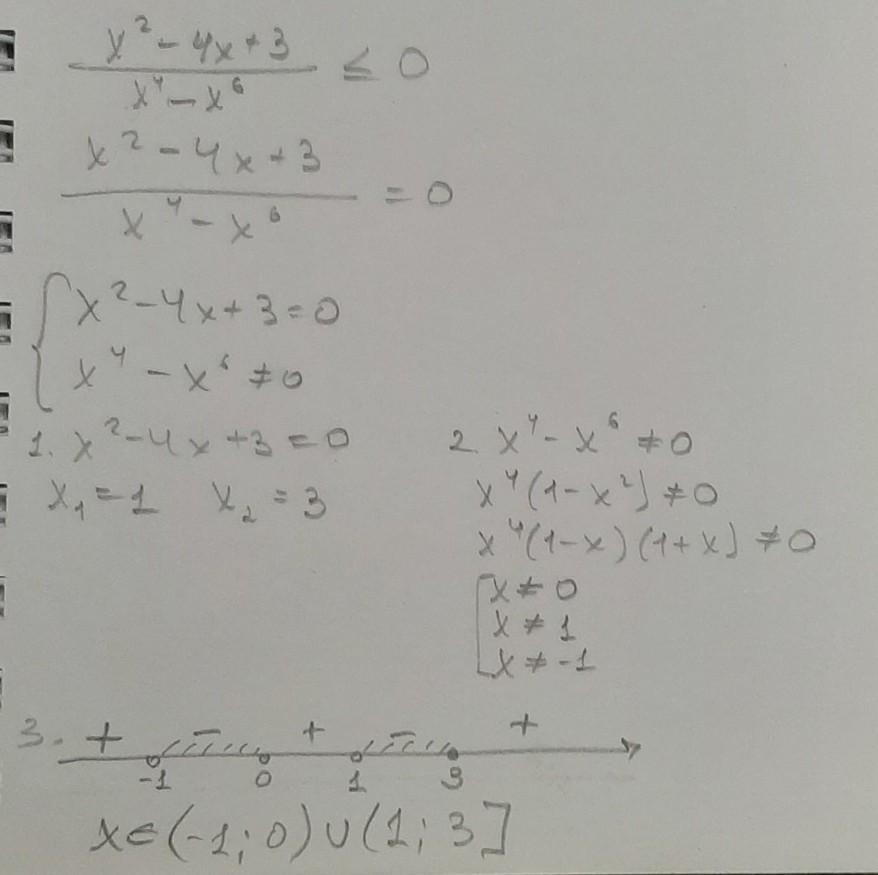 x² - 4x + 3
x⁴ - x⁶
≤ 0
x² - 4x + 3
x⁴ - x⁶
= 0
x² - 4x + 3 = 0
x⁴ - x⁶ ≠ 0
1. x² - 4x + 3 = 0
x₁ = 1 x₂ = 3
2. x⁴ - x⁶ ≠ 0
x⁴(1 - x²) ≠ 0
x⁴(1 - x)(1 + x) ≠ 0
x ≠ 0
x ≠ 1
x ≠ -1
3. + - + - +
-1 0 1 3
x ∈ (-1; 0) ∪ (1; 3]